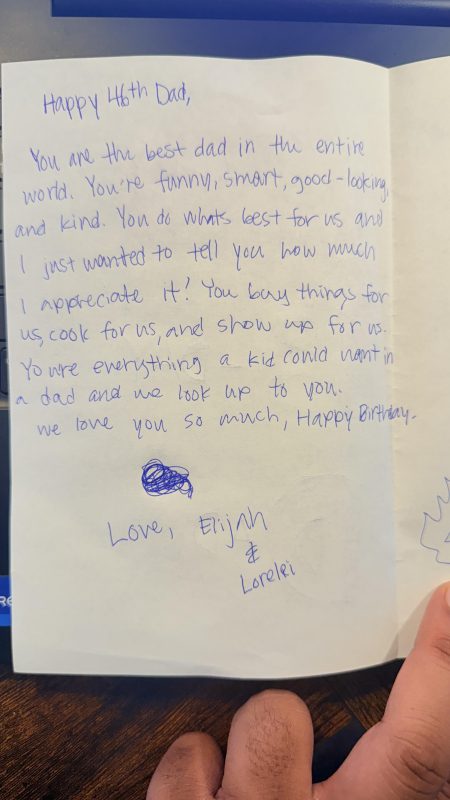 Happy 46th Dad,
You are the best dad in the entire
world. You're funny, smart, good-looking,
and kind. You do whats best for us and
I just wanted to tell you how much
I appreciate it! You buy things for
us, cook for us, and show up for us.
Youre everything a kid could want in
a dad and we look up to you.
We love you so much, Happy Birthday.
Love, Elijah
&
Lorelei